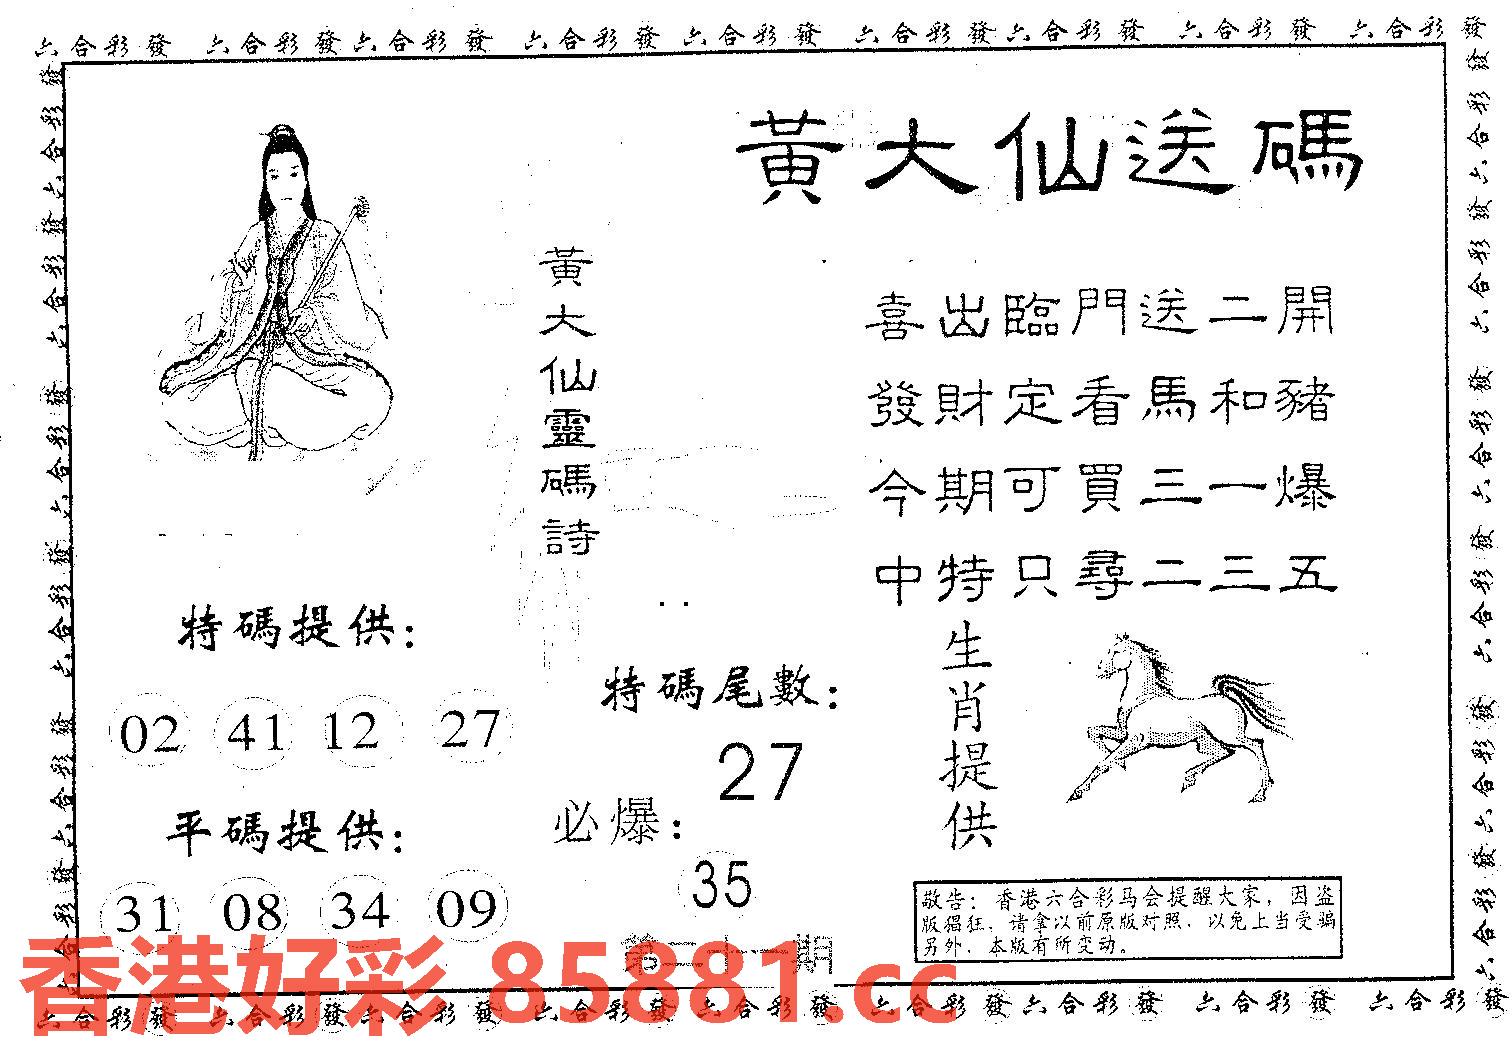 六合彩發 六合彩發 六合彩發 六合彩發 六合彩發 六合彩發 六合彩發 六合彩發 六合彩發
黃大仙送碼
黃大仙靈碼詩
喜出臨門送二開
發財定看馬和豬
今期可買三一爆
中特只尋二三五
特碼提供：
02 41 12 27
平碼提供：
31 08 34 09
特碼尾數：
27
必爆：
35
生肖提供
敬告：香港六合彩马会提醒大家，因盗
版猖狂，请拿以前原版对照，以免上当受骗
另外，本版有所变动。
第二十一期
香港好彩 85881.cc
六合彩發 六合彩發 六合彩發 六合彩發 六合彩發 六合彩發 六合彩發 六合彩發 六合彩發